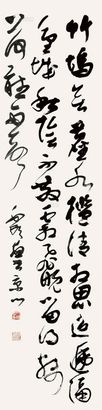 竹塢無塵水檻清相思迢遞隔
重城秋陰不散霜飛晚留得枯
荷聽雨聲